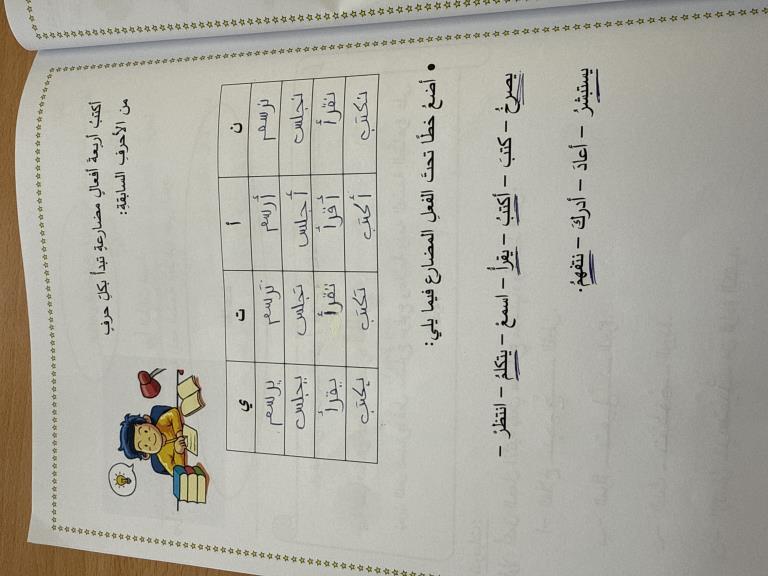 أكتبُ أربعةَ أفعالٍ مضارعةٍ تبدأ بكلِ حرفٍ
من الأحرفِ السابقةِ:
ن أ ت ي
نرسم أرسم ترسم يرسم
نجلس أجلس تجلس يجلس
نقرأ أقرأ تقرأ يقرأ
نكتب أكتب تكتب يكتب
• أضعُ خطًا تحتَ الفعلِ المضارعِ فيما يلي:
يصرخُ – كتبَ – أكتبُ – يقرأُ – اسمعْ – يتكلمُ – انتظرْ –
يستبشرُ – أعادَ – أدركَ – نتفهمُ.